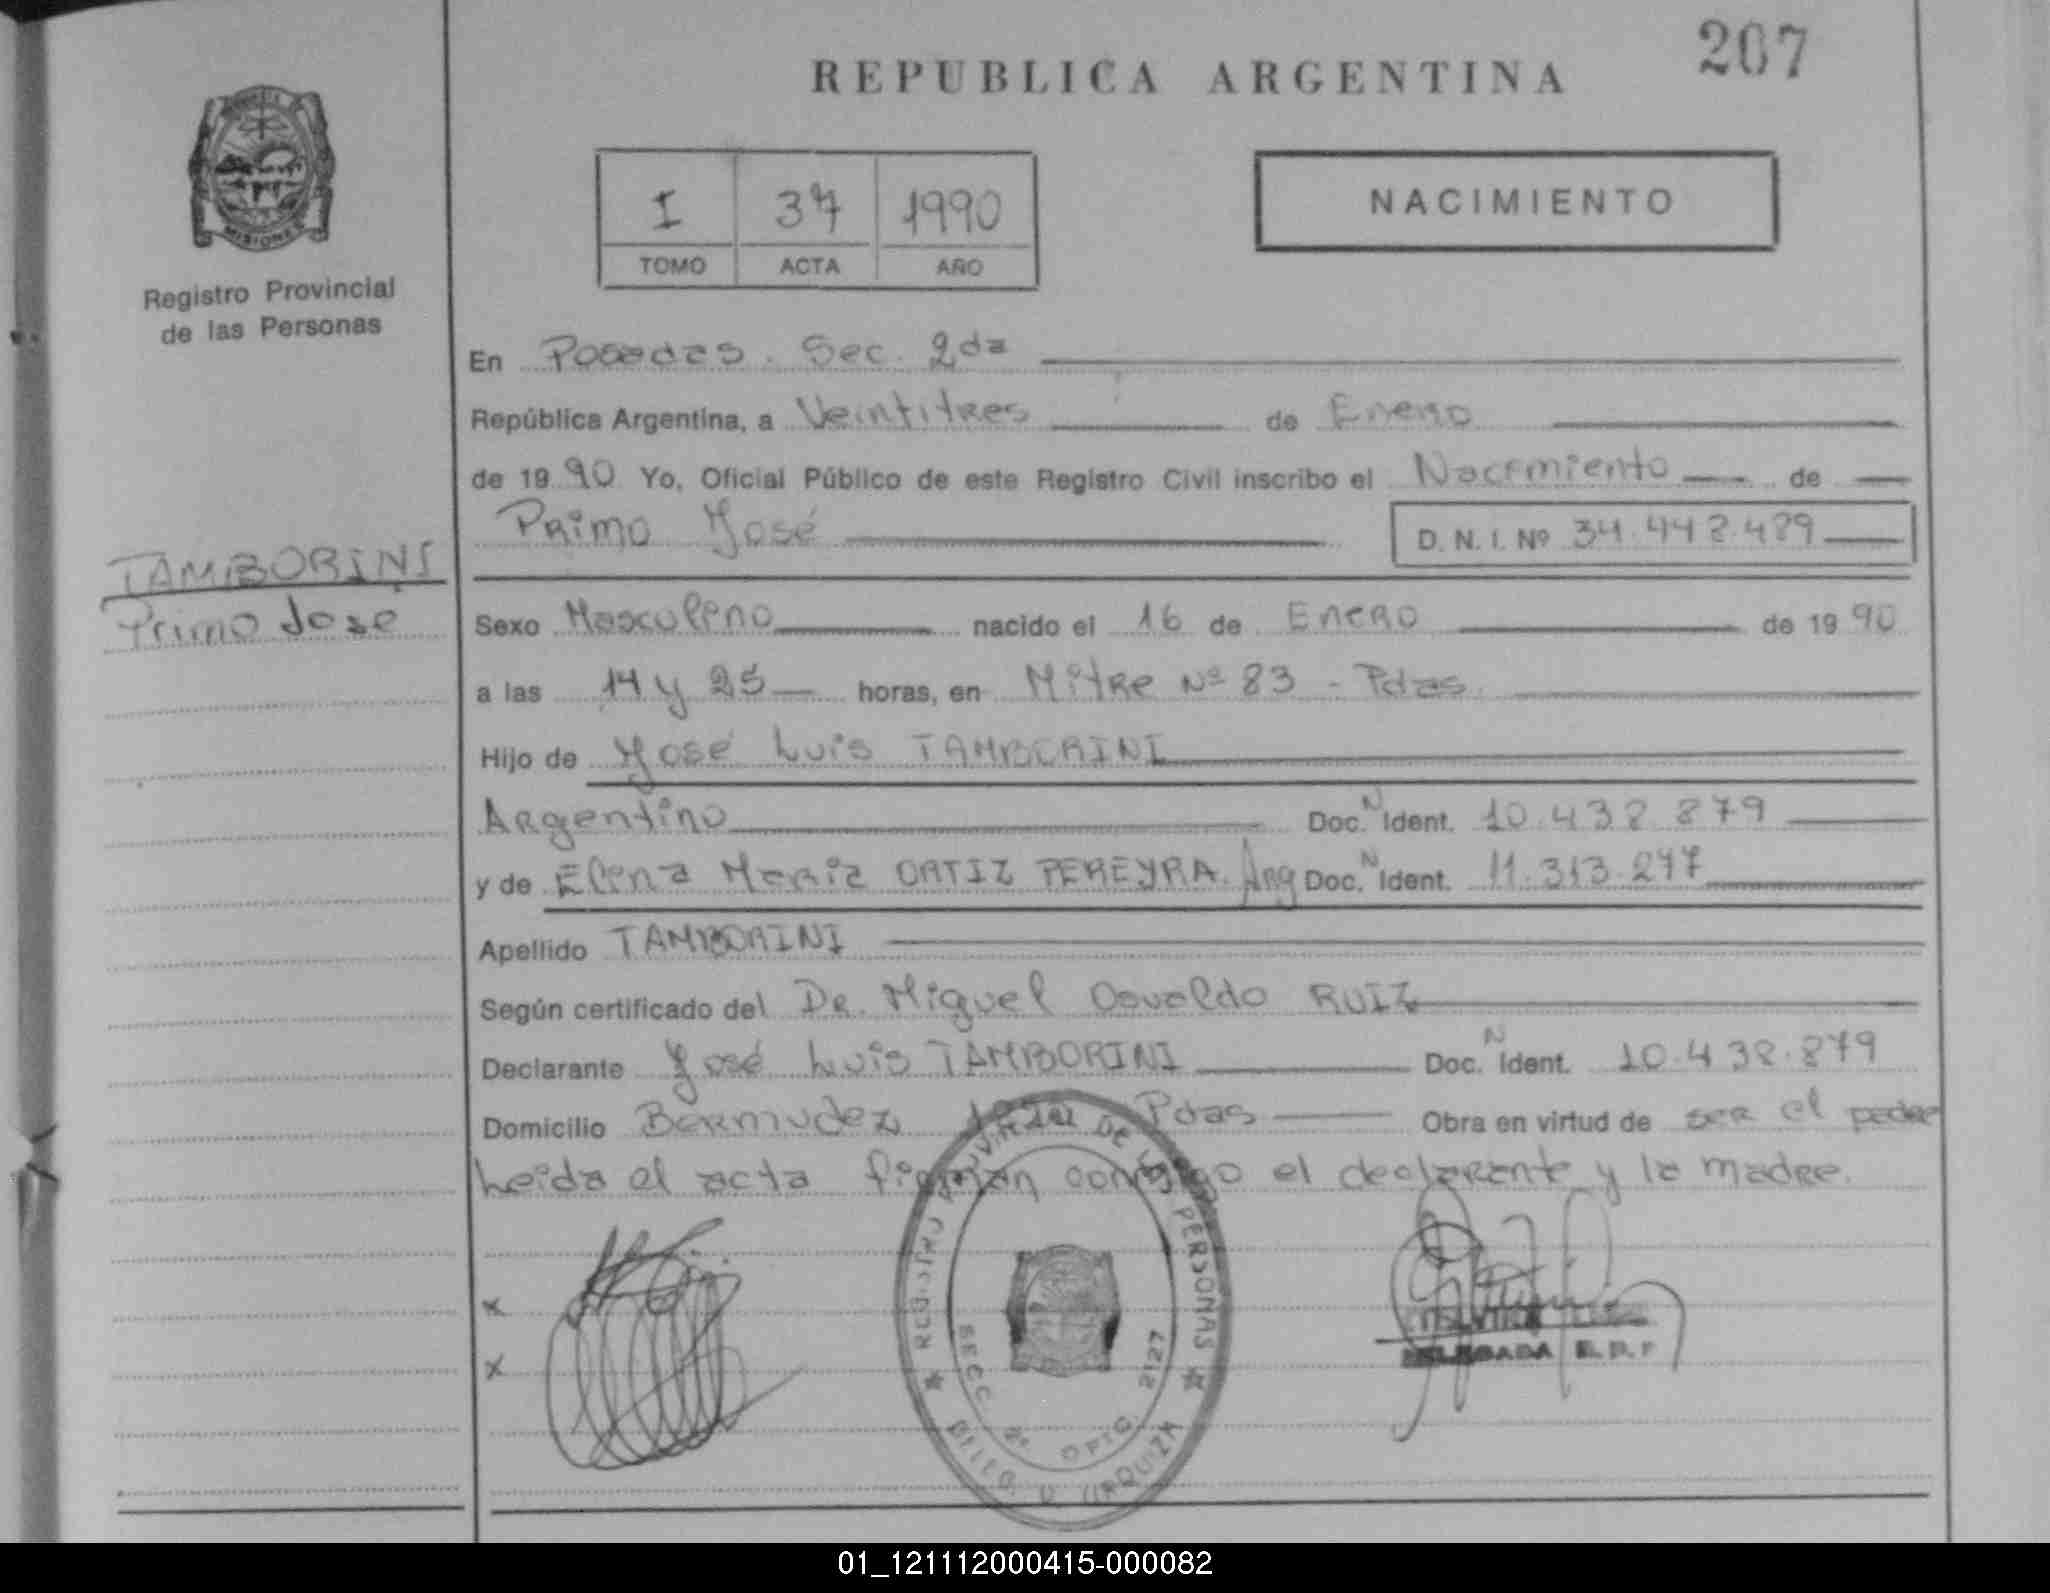 207
REPUBLICA ARGENTINA
MISIONES
Registro Provincial
de las Personas
I 37 1990
TOMO ACTA AÑO
NACIMIENTO
En Posadas. Sec. 2da
República Argentina, a Veintitres de Enero
de 1990 Yo, Oficial Público de este Registro Civil inscribo el Nacimiento de
Primo José D.N.I. Nº 34.448.489
TAMBORINI
Primo José
Sexo Masculino nacido el 16 de Enero de 1990
a las 14 y 25 horas, en Mitre Nº 83 - Pdas.
Hijo de José Luis TAMBORINI
Argentino Doc. N Ident. 10.438.879
y de Elena María ORTIZ PEREYRA. Arg Doc. N Ident. 11.313.277
Apellido TAMBORINI
Según certificado del Dr. Miguel Osvaldo RUIZ
Declarante José Luis TAMBORINI Doc. N Ident. 10.438.879
Domicilio Bermudez Pdas Obra en virtud de ser el padre
Leida el acta firman conmigo el declarante y la madre.
x
x
REGISTRO PROVINCIAL DE LAS PERSONAS
SECC. 2º OFIC. 2127
URQUIZA
DELEGADA
01_121112000415-000082